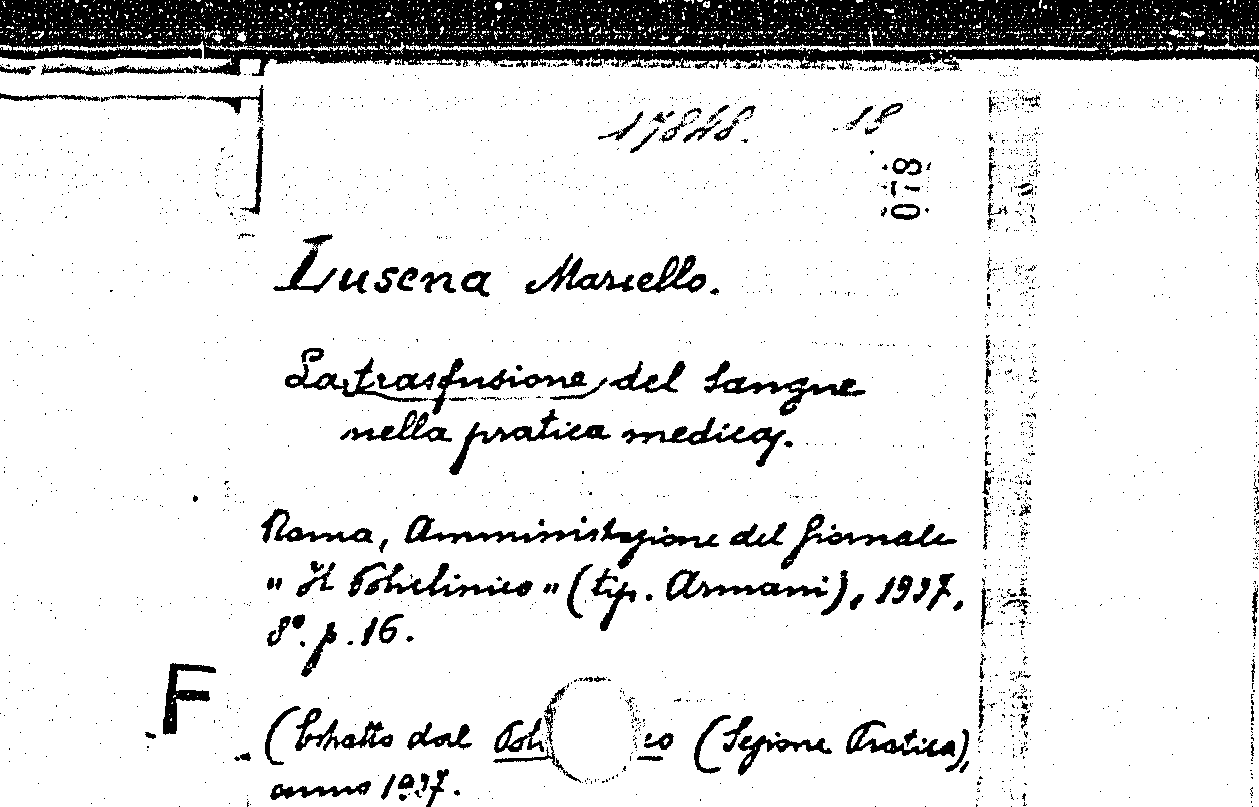 17848. 18
078
Lusena Marcello.
La trasfusione del sangue
nella pratica medica.
Roma, Amministrazione del Giornale
" Il Policlinico " (tip. Armani), 1937,
8°. p. 16.
F
(Estratto dal Poli co (Sezione Pratica),
anno 1937.